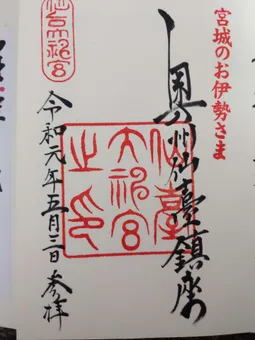 宮城のお伊勢さま
奥州仙臺鎮座
仙台大神宮
仙臺
大神宮
之印
令和元年五月三日参拝